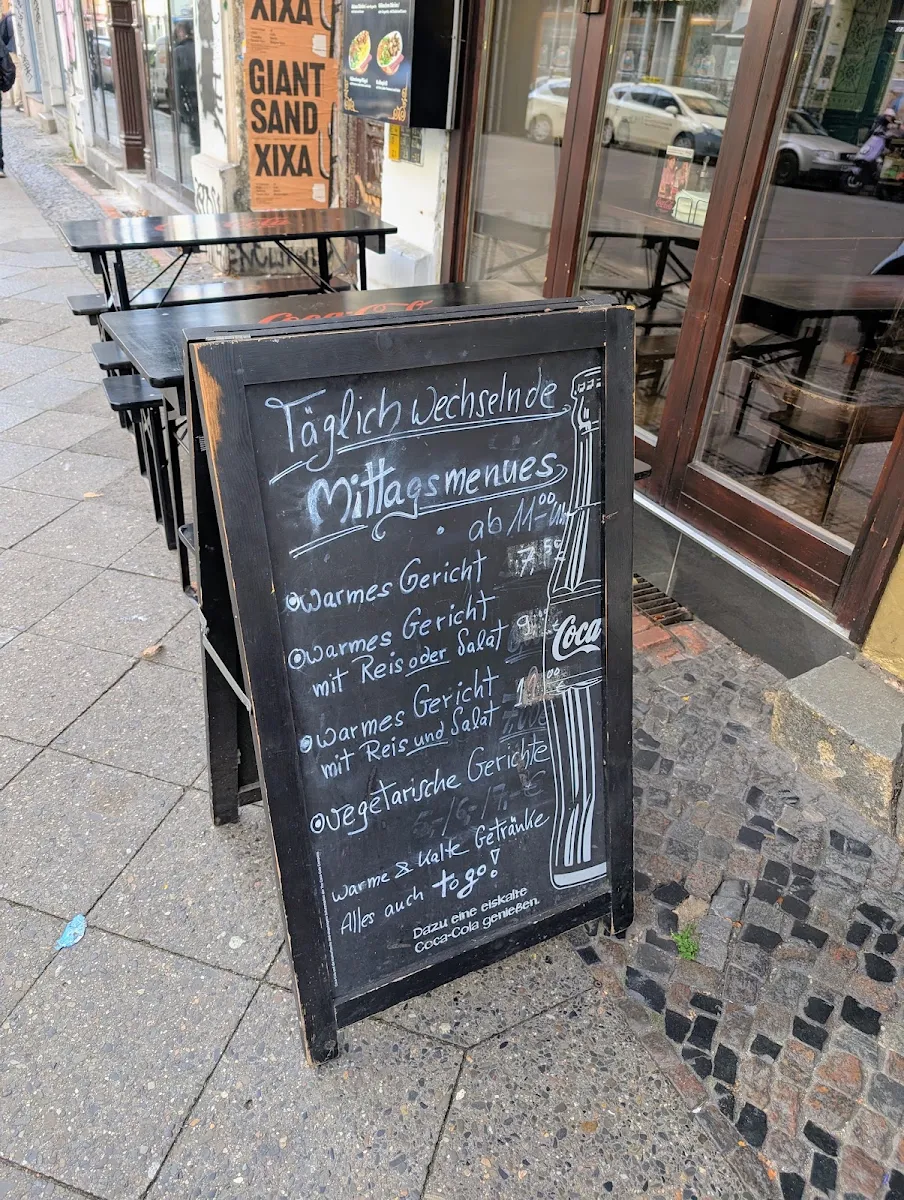 XIXA
GIANT
SAND
XIXA
Coca-Co
Täglich wechselnde
Mittagsmenues
ab 11⁰⁰ Uh
warmes Gericht
warmes Gericht
mit Reis oder Salat
warmes Gericht
mit Reis und Salat
vegetarische Gerichte
warme & kalte Getränke
Alles auch to go!
Dazu eine eiskalte
Coca-Cola genießen.
Coca